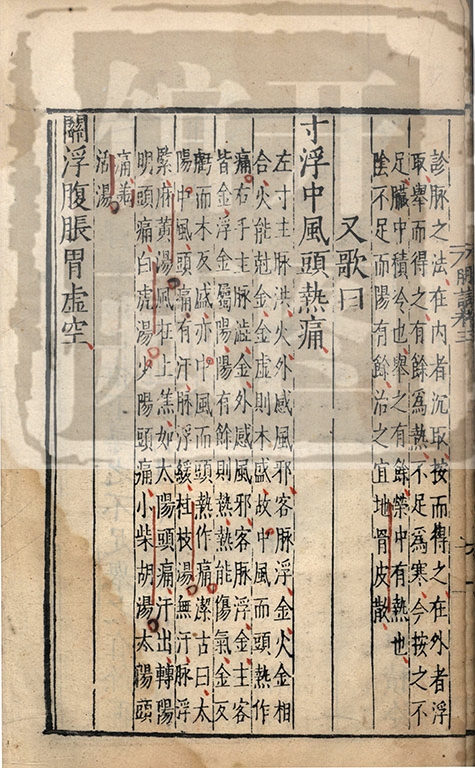 診脉之法在内者沉取按而得之在外者浮
取舉而得之有餘爲熱不足爲寒今按之不
足臟中積冷也舉之有餘榮中有熱也
陰不足而陽有餘治之宜地骨皮散
又歌曰
寸浮中風頭熱痛
左寸主脉洪火外感風邪客脉浮金火金相
合火能尅金金虛則木盛故中風而頭熱作
痛右手主脉澁金外感風邪客脉浮金主客
皆金浮金屬陽陽有餘則熱熱能傷氣金反
虧而木反盛亦中風而頭熱作痛潔古曰太
陽中風頭痛有汗脉浮緩桂枝湯無汗脉浮
緊麻黄湯風在上焦如太陽頭痛汗出轉陽
明頭痛白虎湯少陽頭痛小柴胡湯太陽頭
痛羌
活湯
關浮腹脹胃虛空